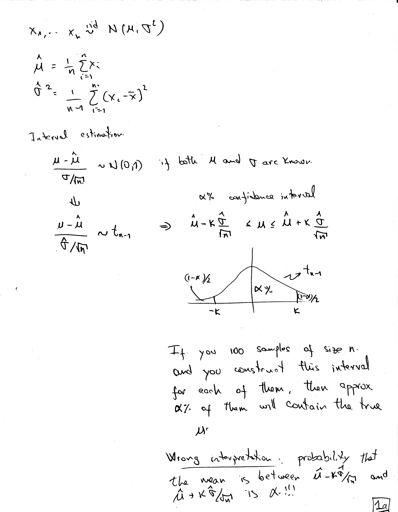 x₁, ... xₙ iid~ N(μ, σ²)
μ̂ = 1/n Σⁿᵢ₌₁ xᵢ
σ̂² = 1/(n-1) Σⁿᵢ₌₁ (xᵢ - x̄)²
Interval estimation
(μ - μ̂)/(σ/√n) ~ N(0,1) if both μ and σ are known.
⇓ α% confidence interval
(μ - μ̂)/(σ̂/√n) ~ tₙ₋₁ ⇒ μ̂ - K σ̂/√n ≤ μ ≤ μ̂ + K σ̂/√n
(1-α)/2 α% tₙ₋₁ (1-α)/2
-K K
If you 100 samples of size n.
and you construct this interval
for each of them, then approx
α% of them will contain the true
μ.
Wrong interpretation: probability that
the mean is between μ̂ - Kσ̂/√n and
μ̂ + Kσ̂/√n is α!!!
1a